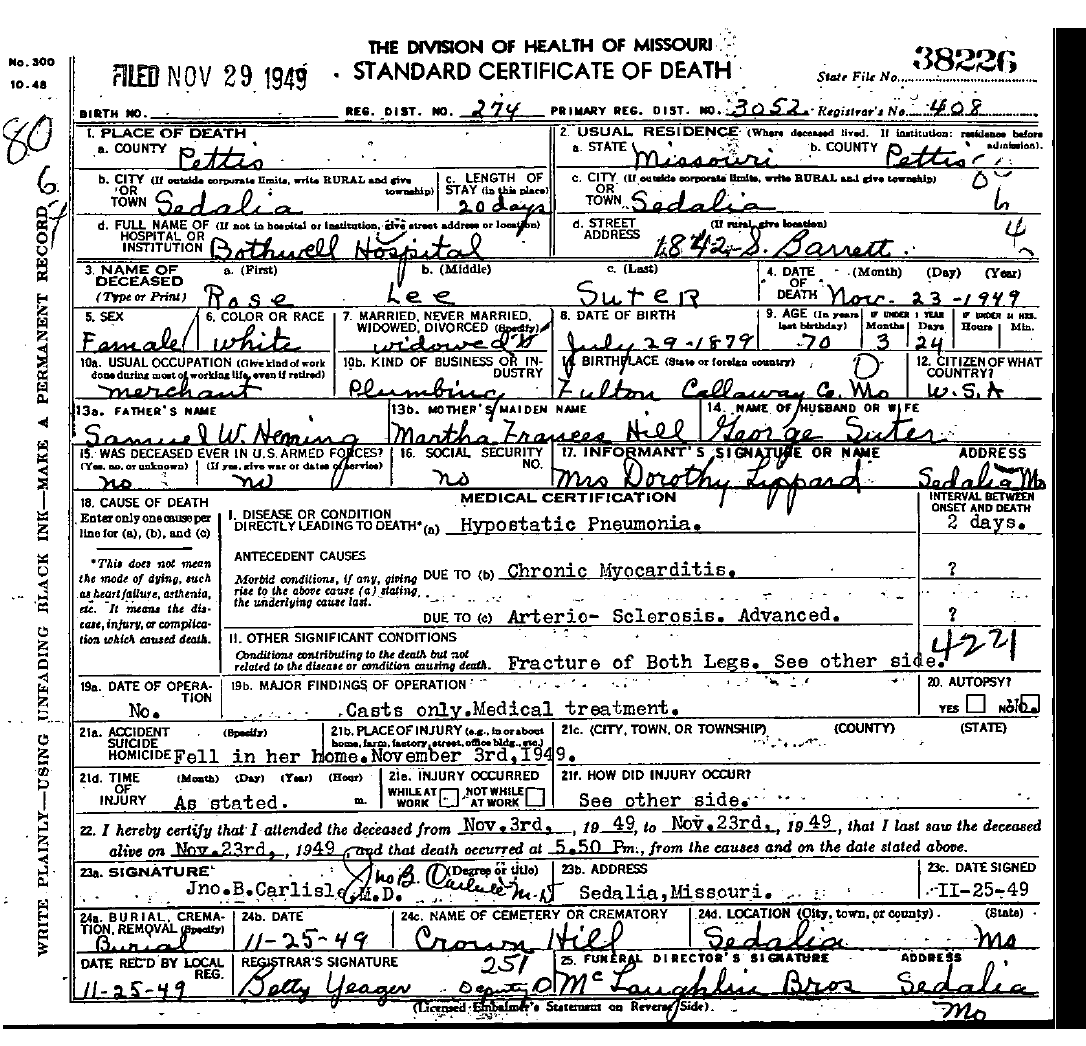 THE DIVISION OF HEALTH OF MISSOURI
No. 300
10-48
FILED NOV 29 1949
STANDARD CERTIFICATE OF DEATH
State File No. 38226
BIRTH NO. REG. DIST. NO. 274 PRIMARY REG. DIST. NO. 3052 Registrar's No. 408
80
6
WRITE PLAINLY—USING UNFADING BLACK INK—MAKE A PERMANENT RECORD
1. PLACE OF DEATH
a. COUNTY Pettis
2. USUAL RESIDENCE (Where deceased lived. If institution: residence before admission).
a. STATE Missouri b. COUNTY Pettis
b. CITY (If outside corporate limits, write RURAL and give township)
OR
TOWN Sedalia
c. LENGTH OF
STAY (in this place)
20 days
c. CITY (If outside corporate limits, write RURAL and give township)
OR
TOWN Sedalia
d. FULL NAME OF (If not in hospital or institution, give street address or location)
HOSPITAL OR
INSTITUTION Bothwell Hospital
d. STREET (If rural, give location)
ADDRESS 1842 S. Barrett
4
3. NAME OF
DECEASED
(Type or Print)
a. (First) b. (Middle) c. (Last)
Rose Lee Suter
4. DATE (Month) (Day) (Year)
OF
DEATH Nov. 23-1949
5. SEX
Female
6. COLOR OR RACE
White
7. MARRIED, NEVER MARRIED,
WIDOWED, DIVORCED (Specify)
widowed
8. DATE OF BIRTH
July 29-1879
9. AGE (In years last birthday)
70
IF UNDER 1 YEAR
Months Days
3 24
IF UNDER 24 HRS.
Hours Min.
10a. USUAL OCCUPATION (Give kind of work
done during most of working life, even if retired)
merchant
10b. KIND OF BUSINESS OR INDUSTRY
Plumbing
11. BIRTHPLACE (State or foreign country)
Fulton Callaway Co. Mo
12. CITIZEN OF WHAT
COUNTRY?
U.S.A
13a. FATHER'S NAME
Samuel W. Heming
13b. MOTHER'S MAIDEN NAME
Martha Frances Hill
14. NAME OF HUSBAND OR WIFE
George Suter
15. WAS DECEASED EVER IN U.S. ARMED FORCES?
(Yes, no, or unknown) (If yes, give war or dates of service)
no no
16. SOCIAL SECURITY
NO.
no
17. INFORMANT'S SIGNATURE OR NAME ADDRESS
Mrs Dorothy Lippard Sedalia Mo
18. CAUSE OF DEATH
Enter only one cause per
line for (a), (b), and (c)
*This does not mean
the mode of dying, such
as heart failure, asthenia,
etc. It means the dis-
ease, injury, or complica-
tion which caused death.
MEDICAL CERTIFICATION
INTERVAL BETWEEN
ONSET AND DEATH
I. DISEASE OR CONDITION
DIRECTLY LEADING TO DEATH* (a) Hypostatic Pneumonia. 2 days.
ANTECEDENT CAUSES
Morbid conditions, if any, giving
rise to the above cause (a) stating
the underlying cause last.
DUE TO (b) Chronic Myocarditis. ?
DUE TO (c) Arterio- Sclerosis. Advanced. ?
II. OTHER SIGNIFICANT CONDITIONS
Conditions contributing to the death but not
related to the disease or condition causing death.
Fracture of Both Legs. See other side.
4221
19a. DATE OF OPERATION
No.
19b. MAJOR FINDINGS OF OPERATION
Casts only. Medical treatment.
20. AUTOPSY?
YES NO
21a. ACCIDENT (Specify)
SUICIDE
HOMICIDE
21b. PLACE OF INJURY (e.g., in or about
home, farm, factory, street, office bldg., etc.)
21c. (CITY, TOWN, OR TOWNSHIP) (COUNTY) (STATE)
Fell in her home. November 3rd, 1949.
21d. TIME (Month) (Day) (Year) (Hour)
OF
INJURY As stated. m.
21e. INJURY OCCURRED
WHILE AT WORK NOT WHILE AT WORK
21f. HOW DID INJURY OCCUR?
See other side.
22. I hereby certify that I attended the deceased from Nov. 3rd, , 19 49, to Nov. 23rd, , 19 49, that I last saw the deceased
alive on Nov. 23rd, , 1949, and that death occurred at 5.50 Pm., from the causes and on the date stated above.
23a. SIGNATURE (Degree or title)
Jno. B. Carlisle M.D. Jno B. Carlisle M.D
23b. ADDRESS
Sedalia, Missouri.
23c. DATE SIGNED
II-25-49
24a. BURIAL, CREMA-
TION, REMOVAL (Specify)
Burial
24b. DATE
11-25-49
24c. NAME OF CEMETERY OR CREMATORY
Crown Hill
24d. LOCATION (City, town, or county) (State)
Sedalia Mo
DATE REC'D BY LOCAL
REG.
11-25-49
REGISTRAR'S SIGNATURE 251
Betty Yeager Deputy
25. FUNERAL DIRECTOR'S SIGNATURE ADDRESS
McLaughlin Bros Sedalia
Mo
(Licensed Embalmer's Statement on Reverse Side)